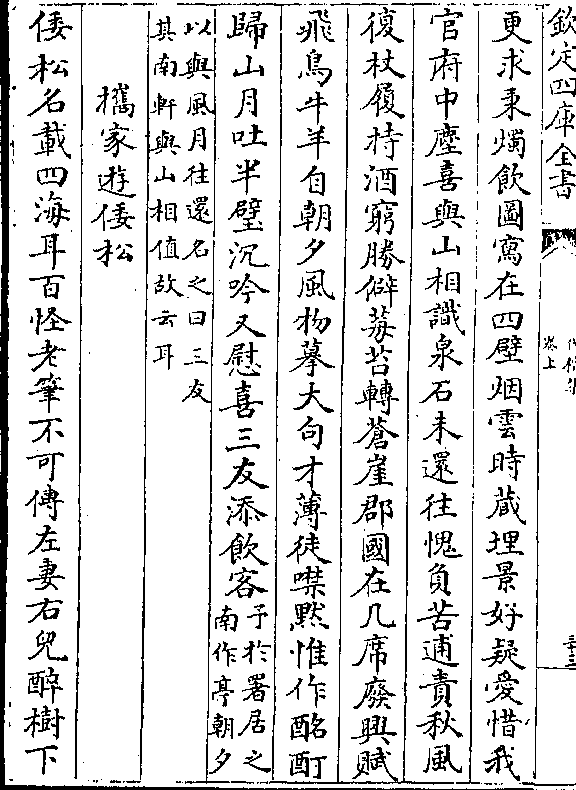 欽定四庫全書
卷上
更求秉燭飲圖寫在四壁烟雲時蔵埋景好疑愛惜我
官府中塵喜與山相識泉石未還往愧負苦逋責秋風
復杖屨持酒窮勝僻莓苔轉蒼崖郡國在几席廢興賦
飛鳥牛羊自朝夕風物摹大句才薄徒噤黙惟作酩酊
歸山月吐半璧沉吟又慰喜三友添飲客
予於署居之
南作亭朝夕
以與風月往還名之曰三友
其南軒與山相值故云耳
攜家遊倭松
倭松名載四海耳百怪老筆不可傳左妻右兒醉樹下